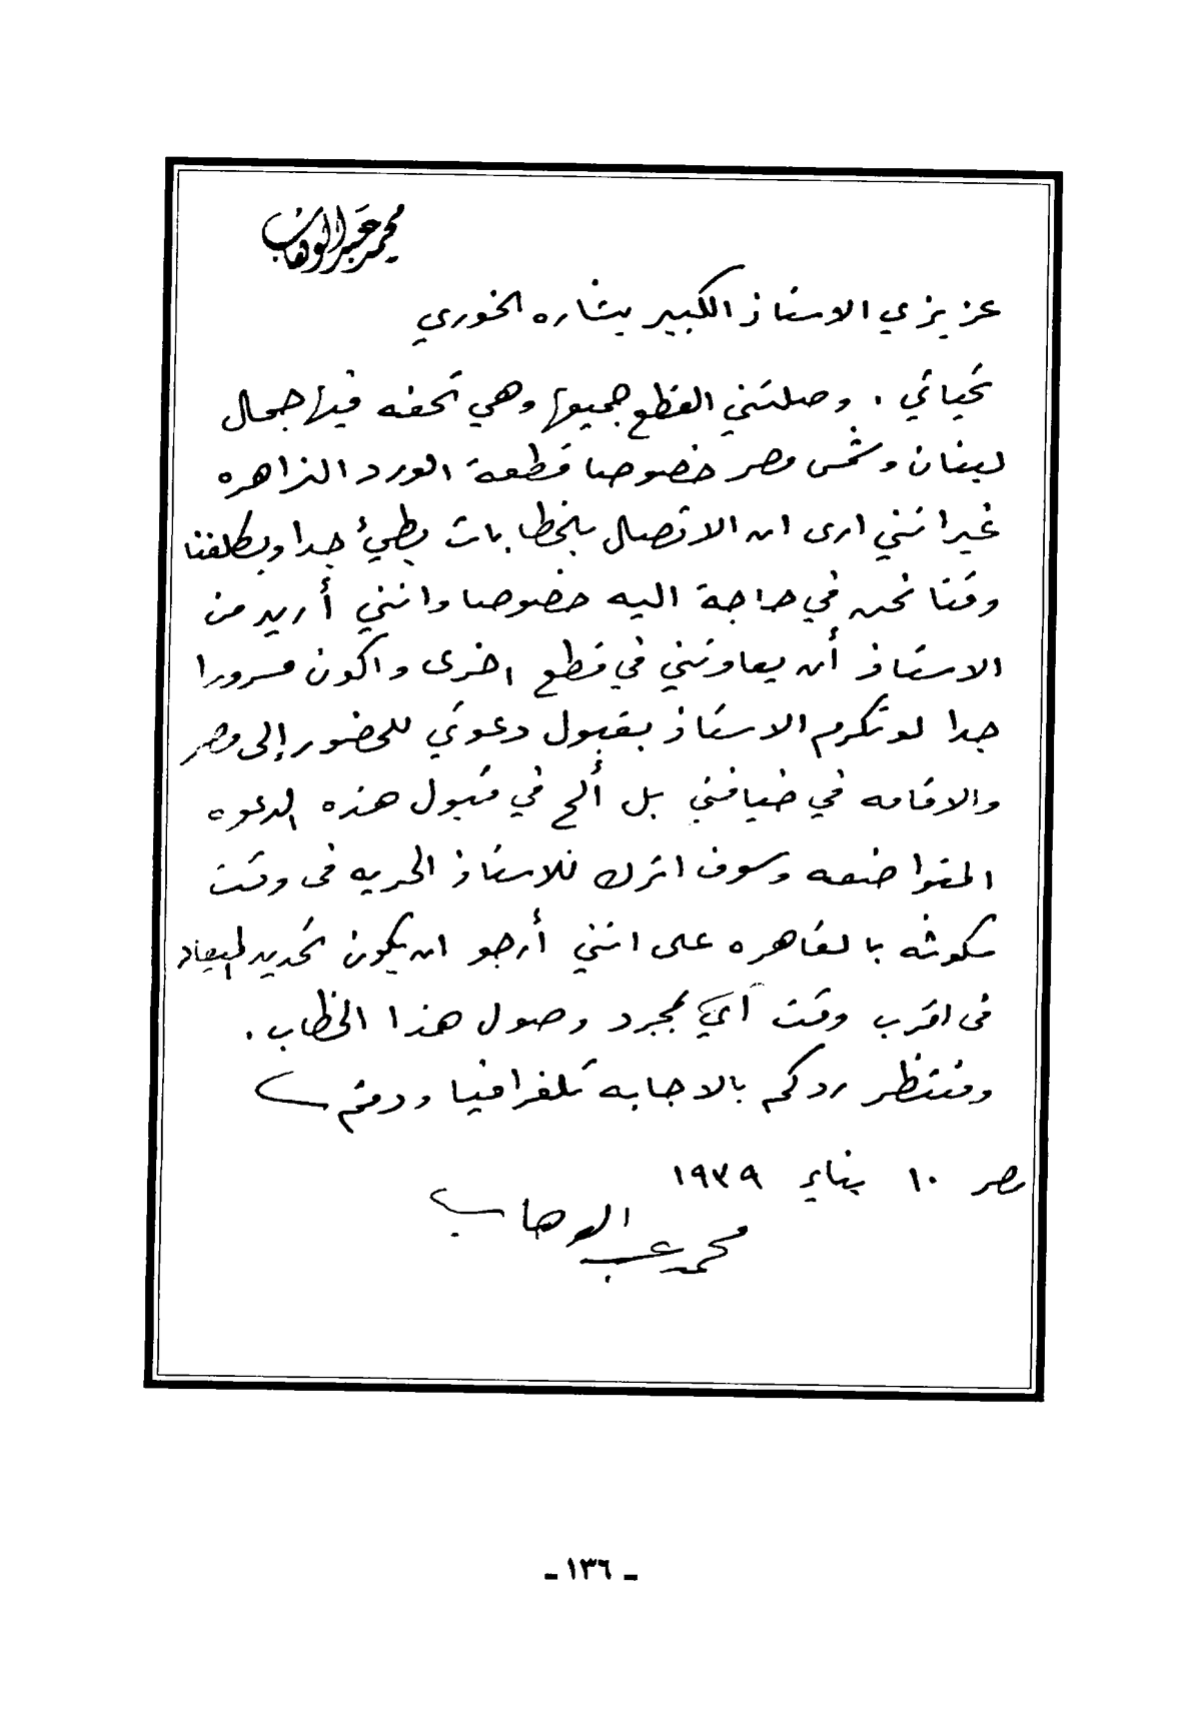 محمد عبد الوهاب
عزيزي الاستاذ الكبير بشاره الخوري
تحياتي . وصلتني القطع جميعها وهي تحفه فيها جمال
لبنان وشمس مصر خصوصا قطعة الورد الزاهره
غير انني ارى ان الاتصال بالخطابات بطيئ جدا ويكلفنا
وقتا نحن في حاجة اليه خصوصا وانني أريد من
الاستاذ أن يعاونني في قطع اخرى واكون مسرورا
جدا لو تكرم الاستاذ بقبول دعوتي للحضور إلى مصر
والاقامه في ضيافتي بل ألح في قبول هذه الدعوه
المتواضعه وسوف اترك للاستاذ الحريه فى وقت
مكوثه بالقاهره على انني أرجو ان يكون تحديد الميعاد
فى اقرب وقت أي بمجرد وصول هذا الخطاب .
ومنتظر ردكم بالاجابه تلغرافيا ودمتم
مصر ١٠ يناير ١٩٣٩
محمد عبد الوهاب
- ١٣٦ -